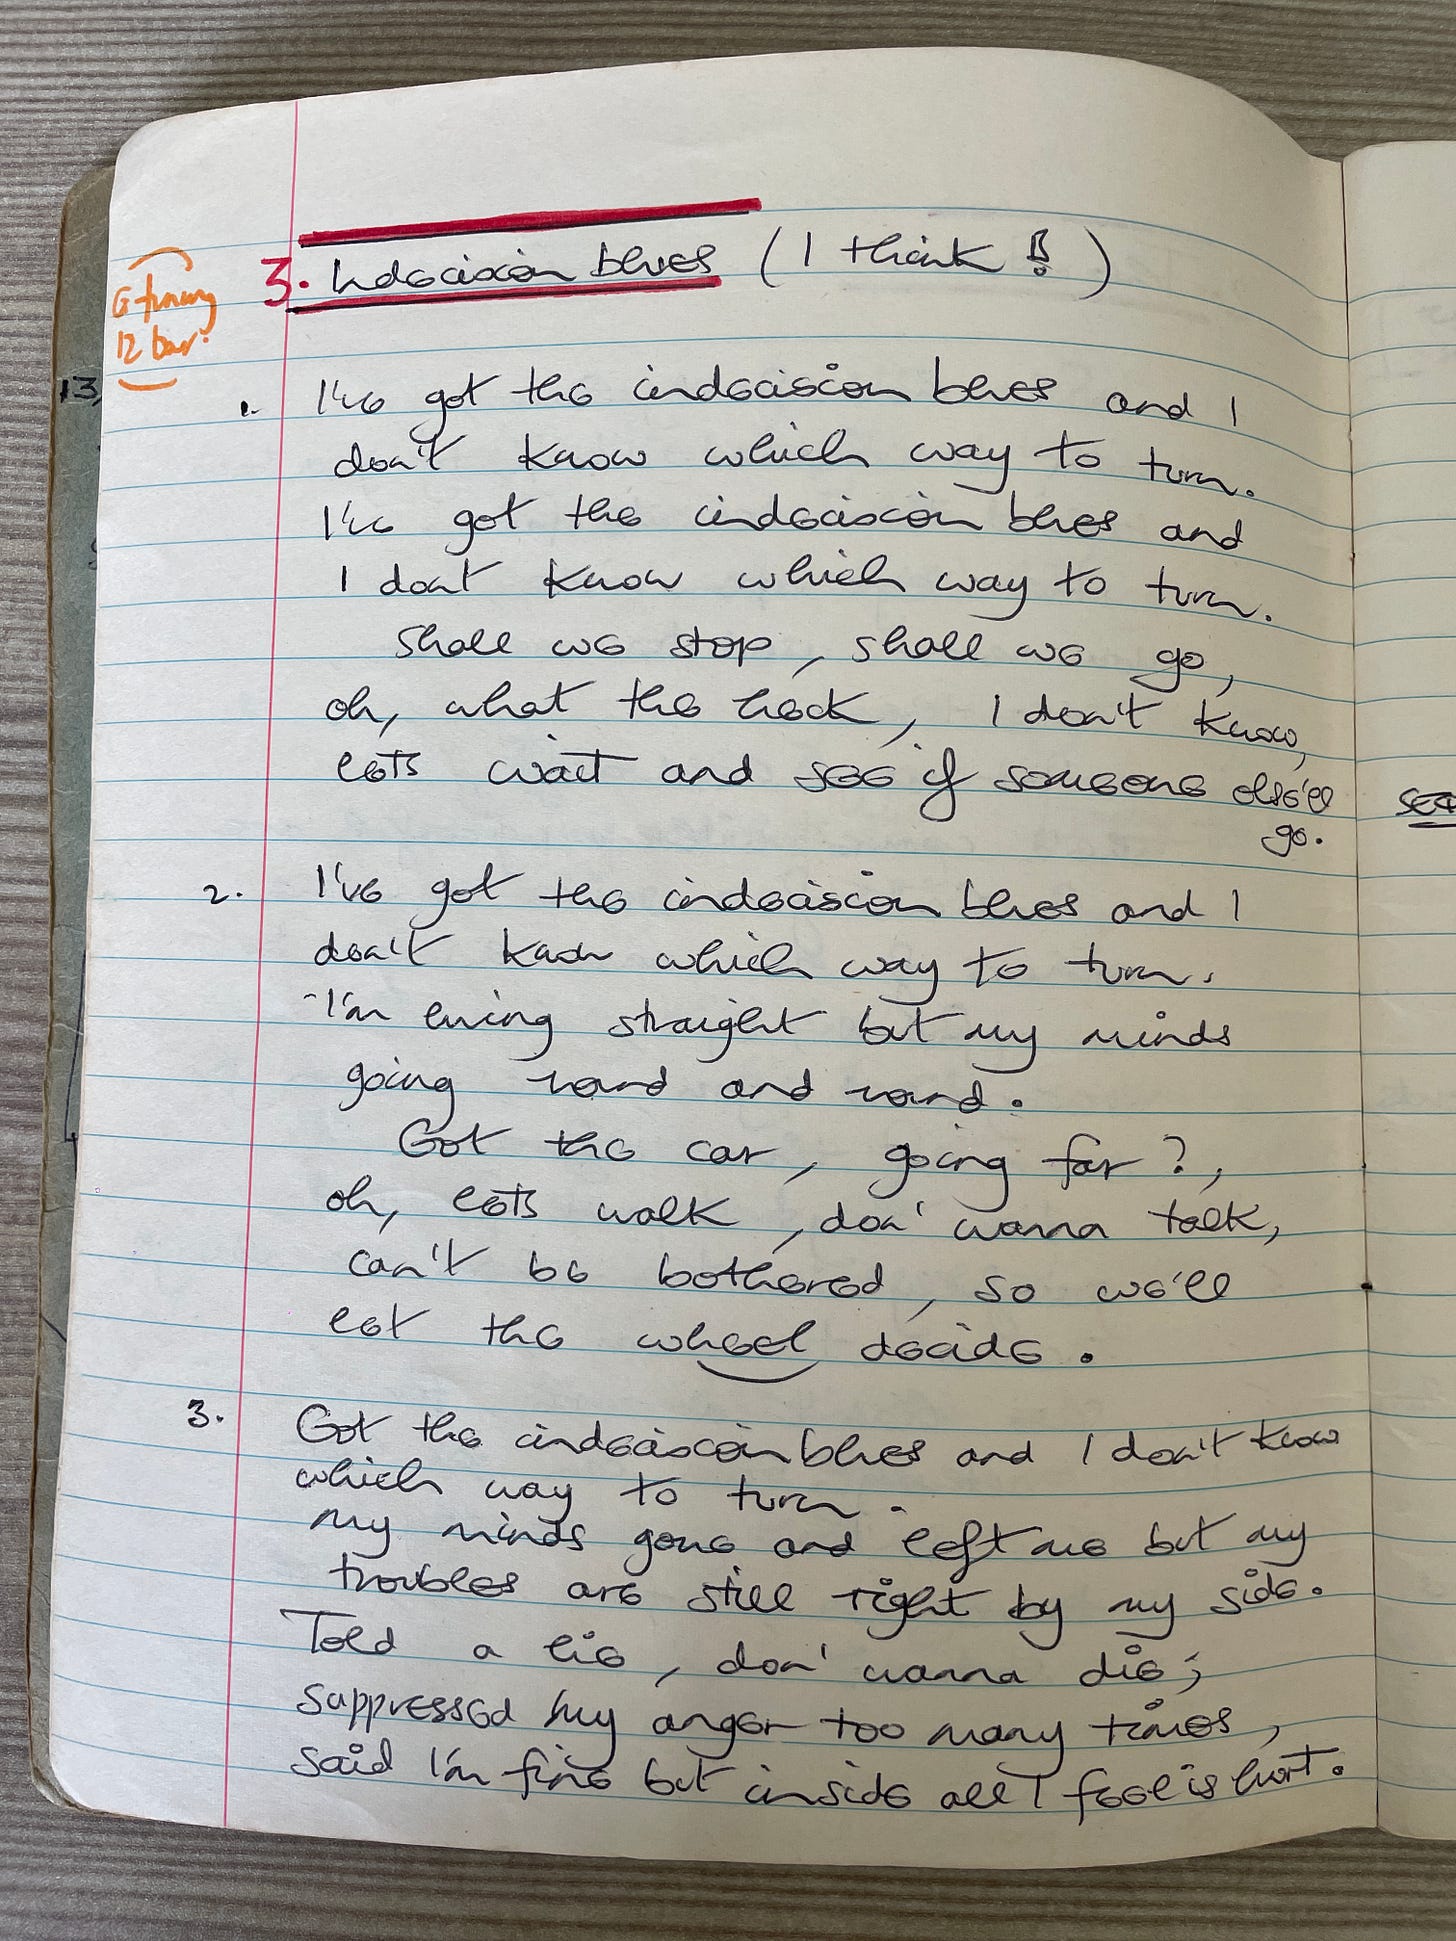 3. Indecision blues (I think!)
G tuning
12 bar.
13,
1. I've got the indecision blues and I
don't know which way to turn.
I've got the indecision blues and
I dont know which way to turn.
Shall we stop, shall we go,
oh, what the heck, I don't know,
lets wait and see if someone else'll
go.
2. I've got the indecision blues and I
don't know which way to turn.
I'm living straight but my minds
going round and round.
Got the car, going far?,
oh, lets walk, don' wanna talk,
can't be bothered, so we'll
let the wheel decide.
3. Got the indecision blues and I don't know
which way to turn.
My minds gone and left me but my
troubles are still right by my side.
Told a lie, don' wanna die;
suppressed my anger too many times,
said I'm fine but inside all I feel is hurt.